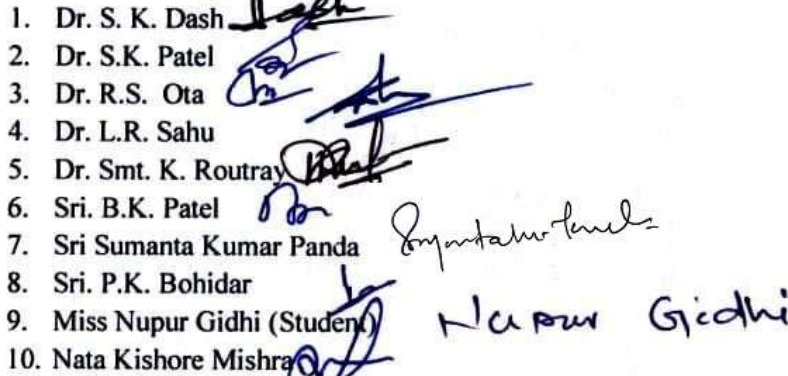 1. Dr. S. K. Dash
2. Dr. S.K. Patel
3. Dr. R.S. Ota
4. Dr. L.R. Sahu
5. Dr. Smt. K. Routray
6. Sri. B.K. Patel
7. Sri Sumanta Kumar Panda
8. Sri. P.K. Bohidar
9. Miss Nupur Gidhi (Student) Nupur Gidhi
10. Nata Kishore Mishra